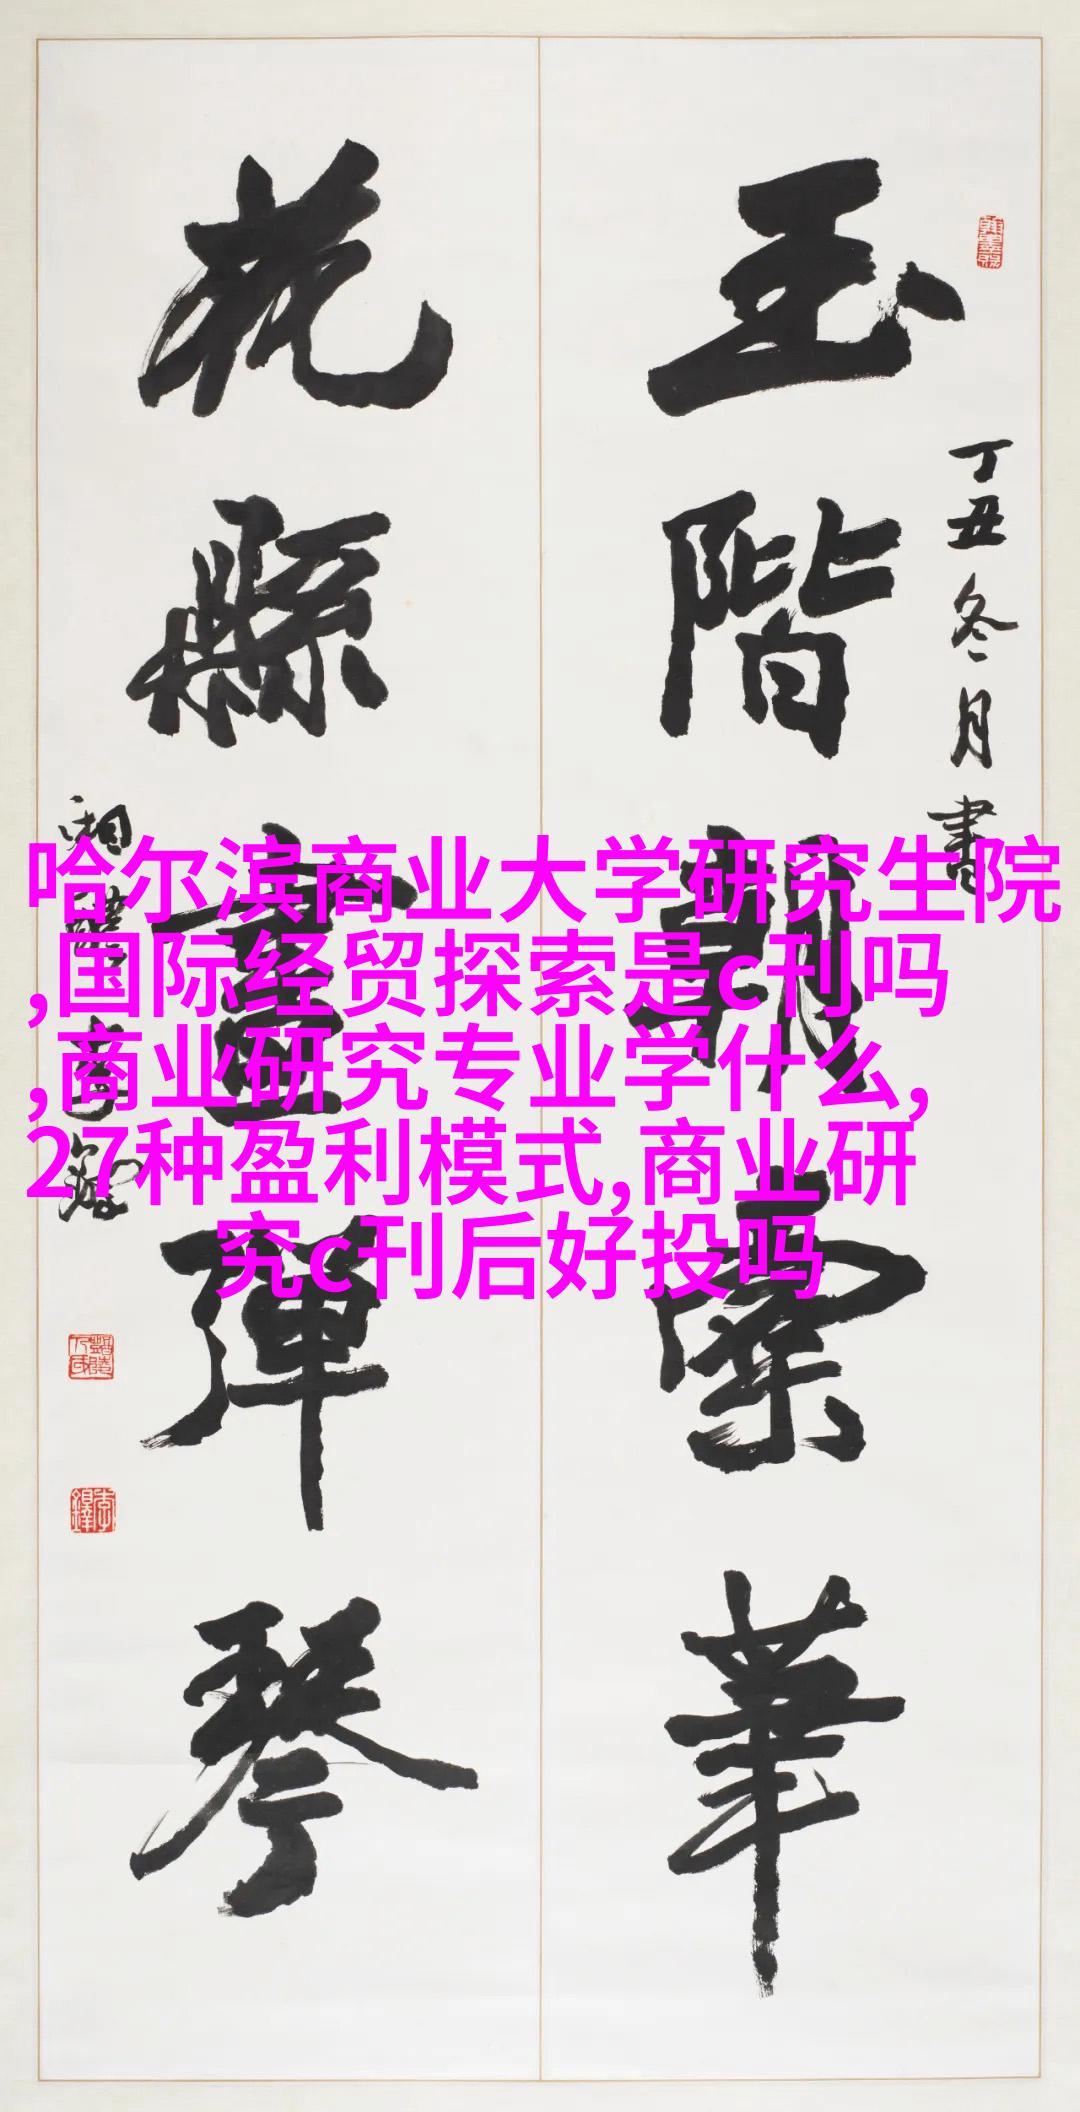 玉階朝華
丁丑冬月書
花縣彈琴
湘醴李鐸
哈尔滨商业大学研究生院
,国际经贸探索是c刊吗
,商业研究专业学什么,
27种盈利模式,商业研
究c刊后好投吗